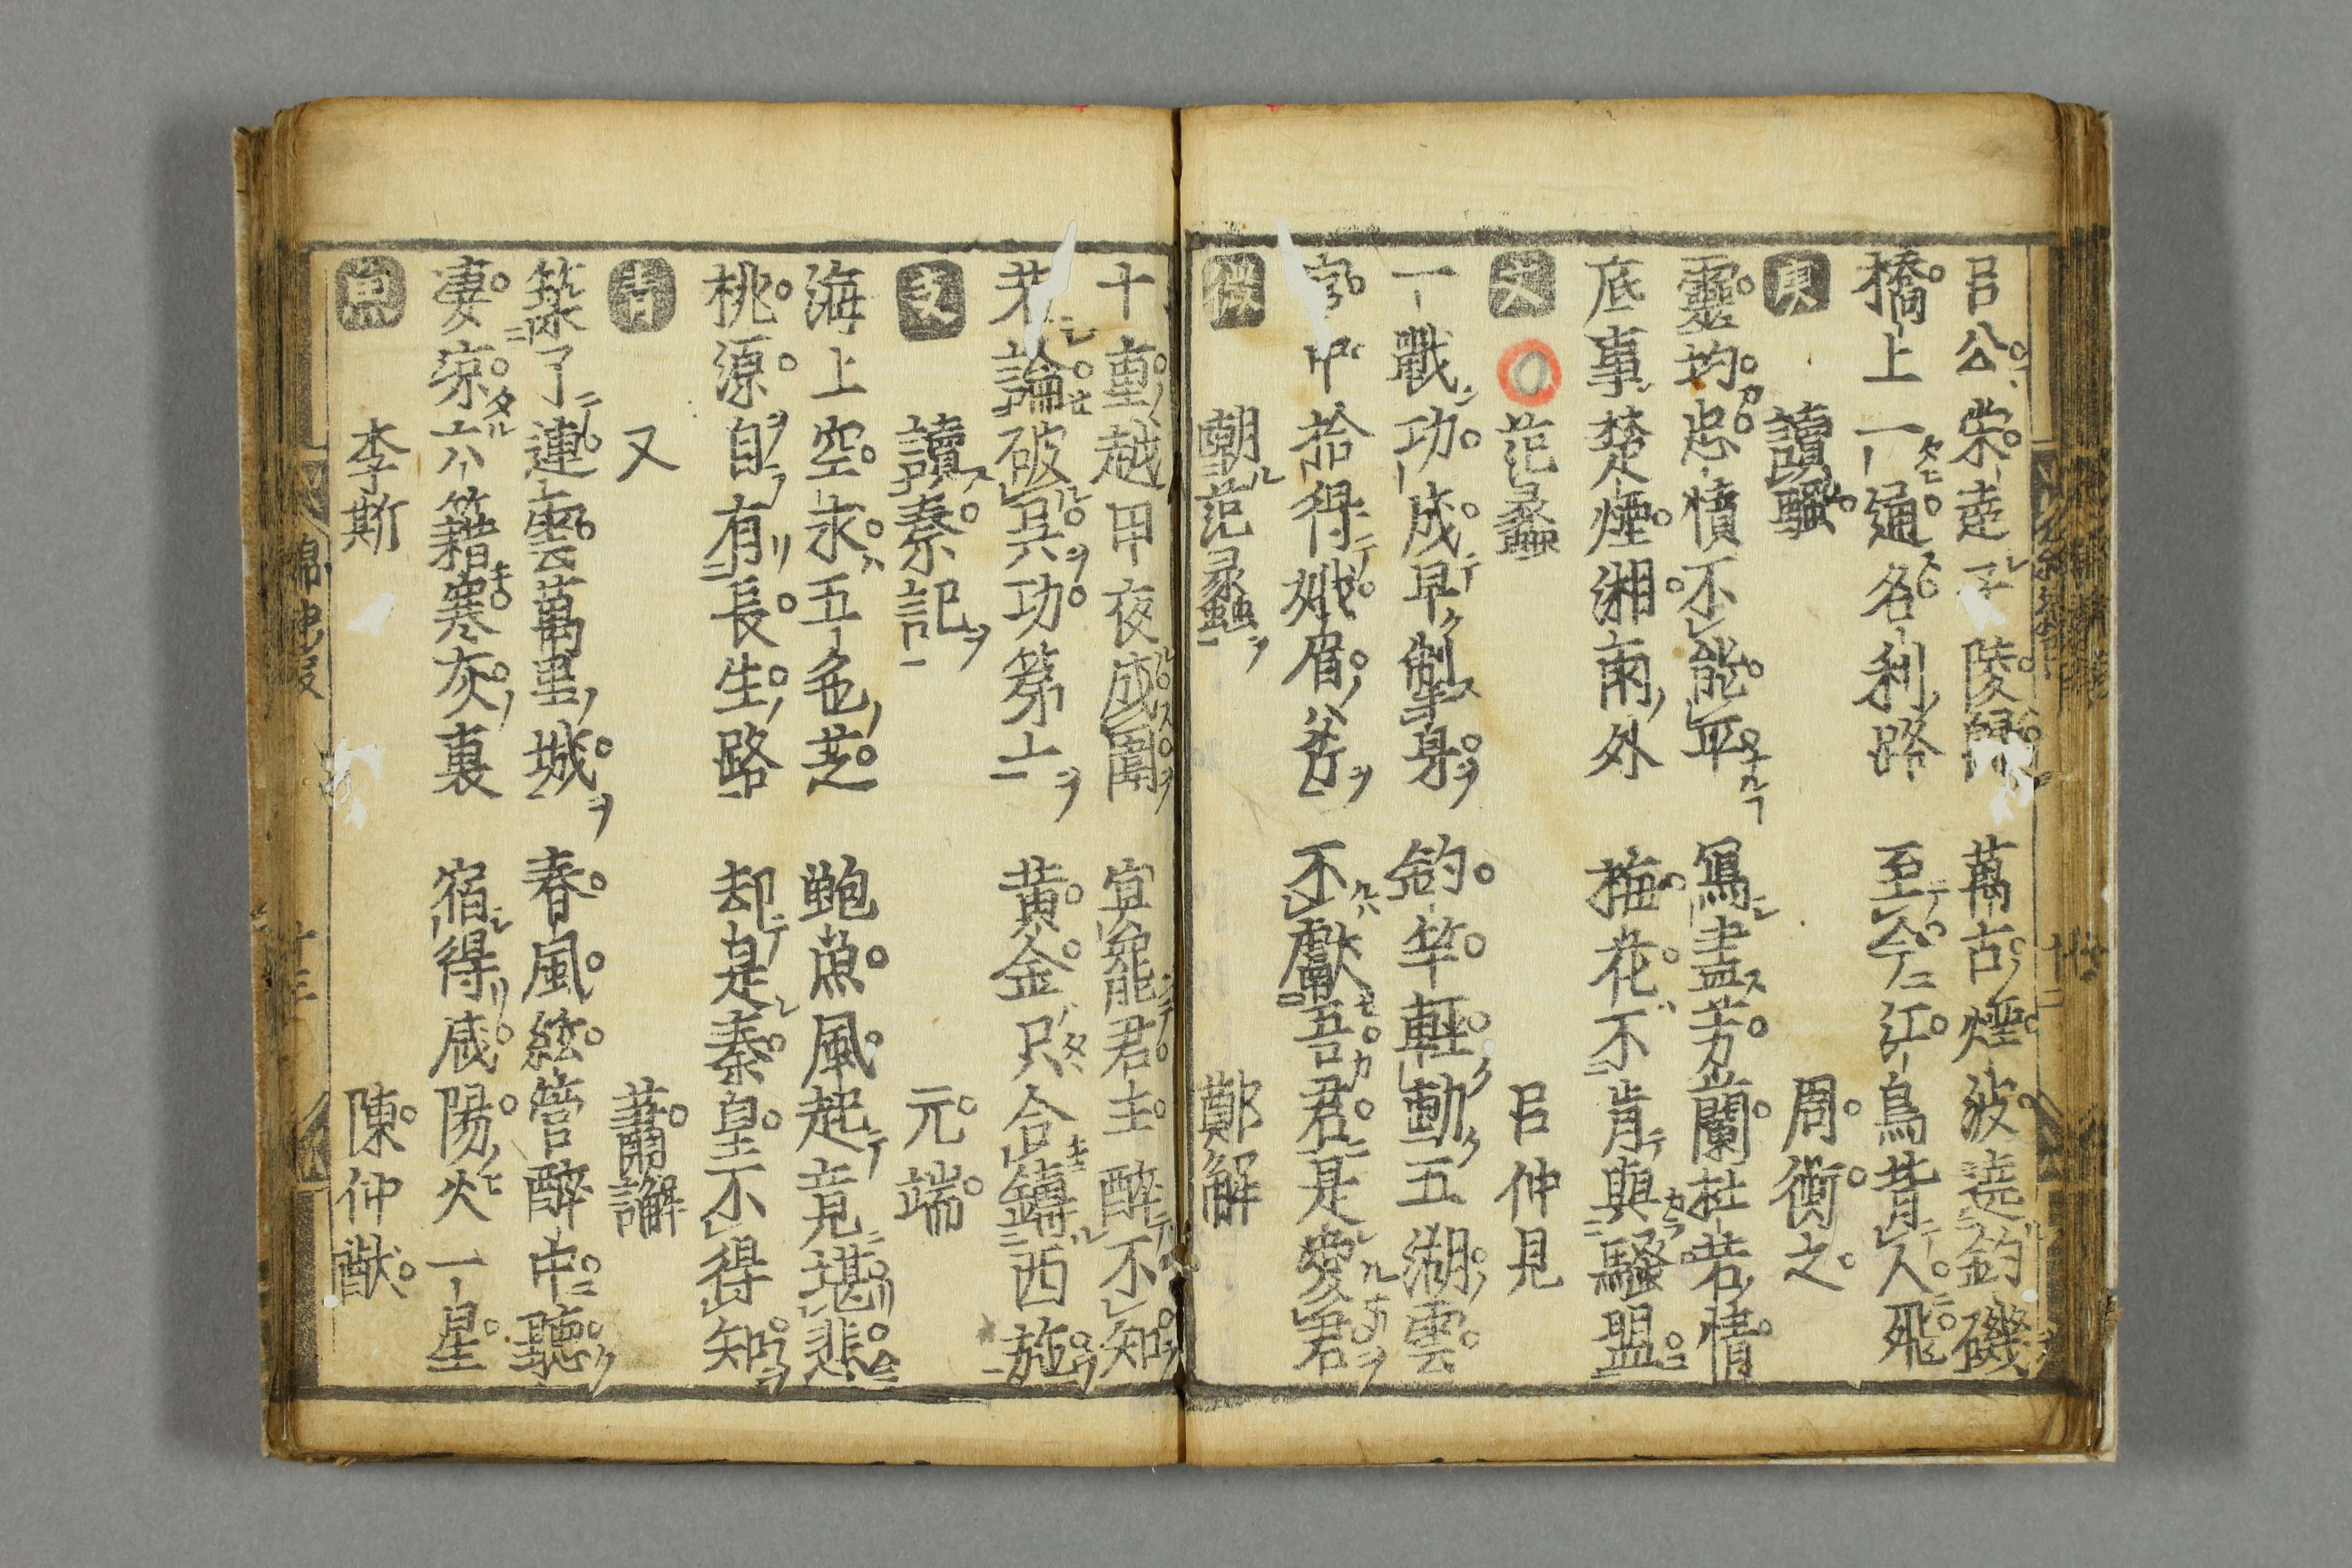 呂公榮走子陵歸 萬古煙波遶釣磯
橋上一通名利路 至今江鳥背人飛
庚 讀騷 周衡之
靈均忠憤不能平 寫盡芳蘭杜若情
底事楚煙湘雨外 梅花不肯與騷盟
文 范蠡 呂仲見
一戰功成早掣身 釣竿輕動五湖雲
宮中拾得娥眉斧 不獻吾君是愛君
微 嘲范蠡 鄭解
十重越甲夜成圍 宴罷君主醉不知
若論破吳功第一 黃金只合鑄西施
支 讀秦記 元端
海上空求五色芝 鮑魚風起竟堪悲
桃源自有長生路 却是秦皇不得知
青 又 蕭澥
築了連雲萬里城 春風絃管醉中聽
凄凉六籍寒灰裏 宿得咸陽火一星
魚 李斯 陳仲猷
錦繡段 十三